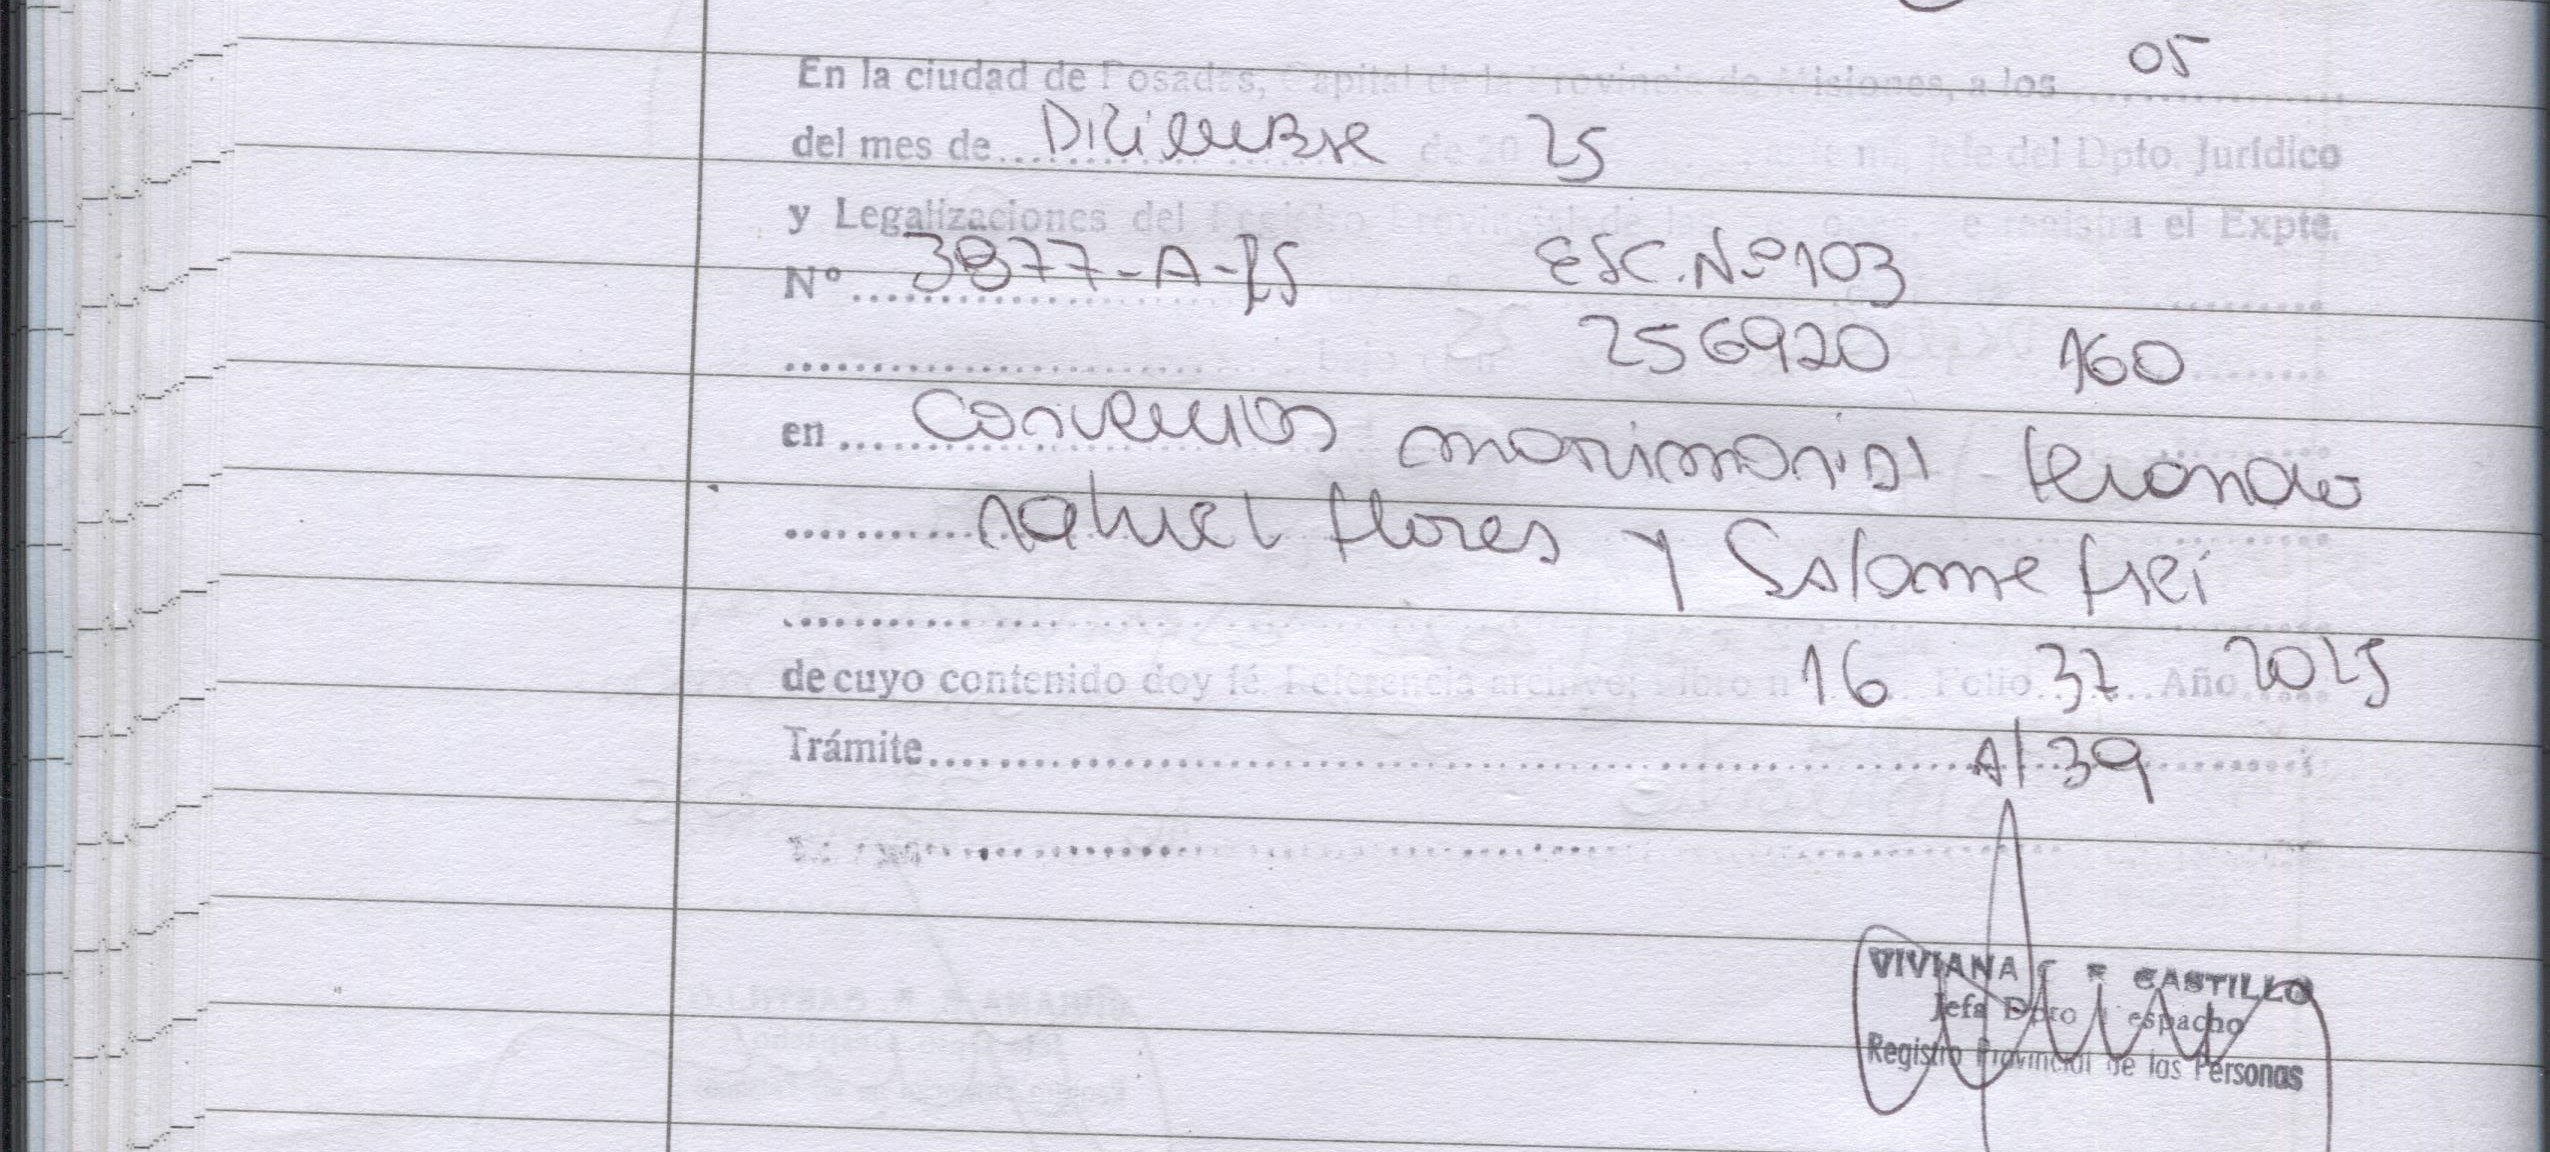 En la ciudad de Posadas, Capital de la Provincia de Misiones, a los 05
del mes de Diciembre de 20 25 jefe del Dpto. Jurídico
y Legalizaciones del Registro Provincial de las se registra el Expte.
Nº 3877-A-25 ESC.Nº103
256920 160
en matrimonial
nahuel flores y Salome frei
de cuyo contenido doy fé. Referencia archivo; Libro n 16 Folio 37 Año 2025
Trámite A/39
VIVIANA F CASTILLO
Jefa Dpto Despacho
Registro Provincial de las Personas